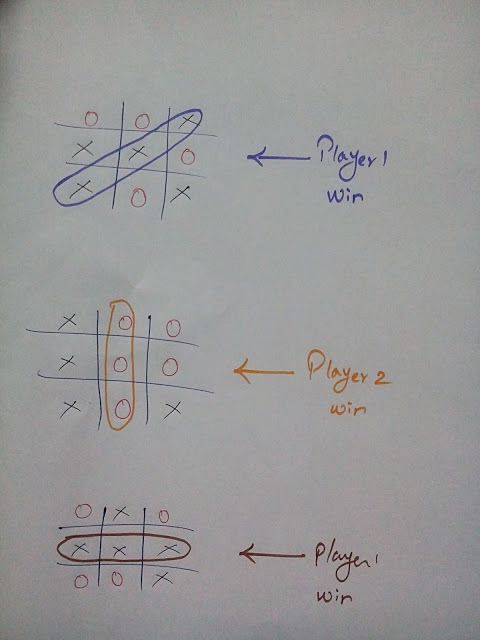 O O X
X X O
X O X
Player 1
win
X O O
X O O
X O X
Player 2
win
O X O
X X X
O O X
Player 1
win